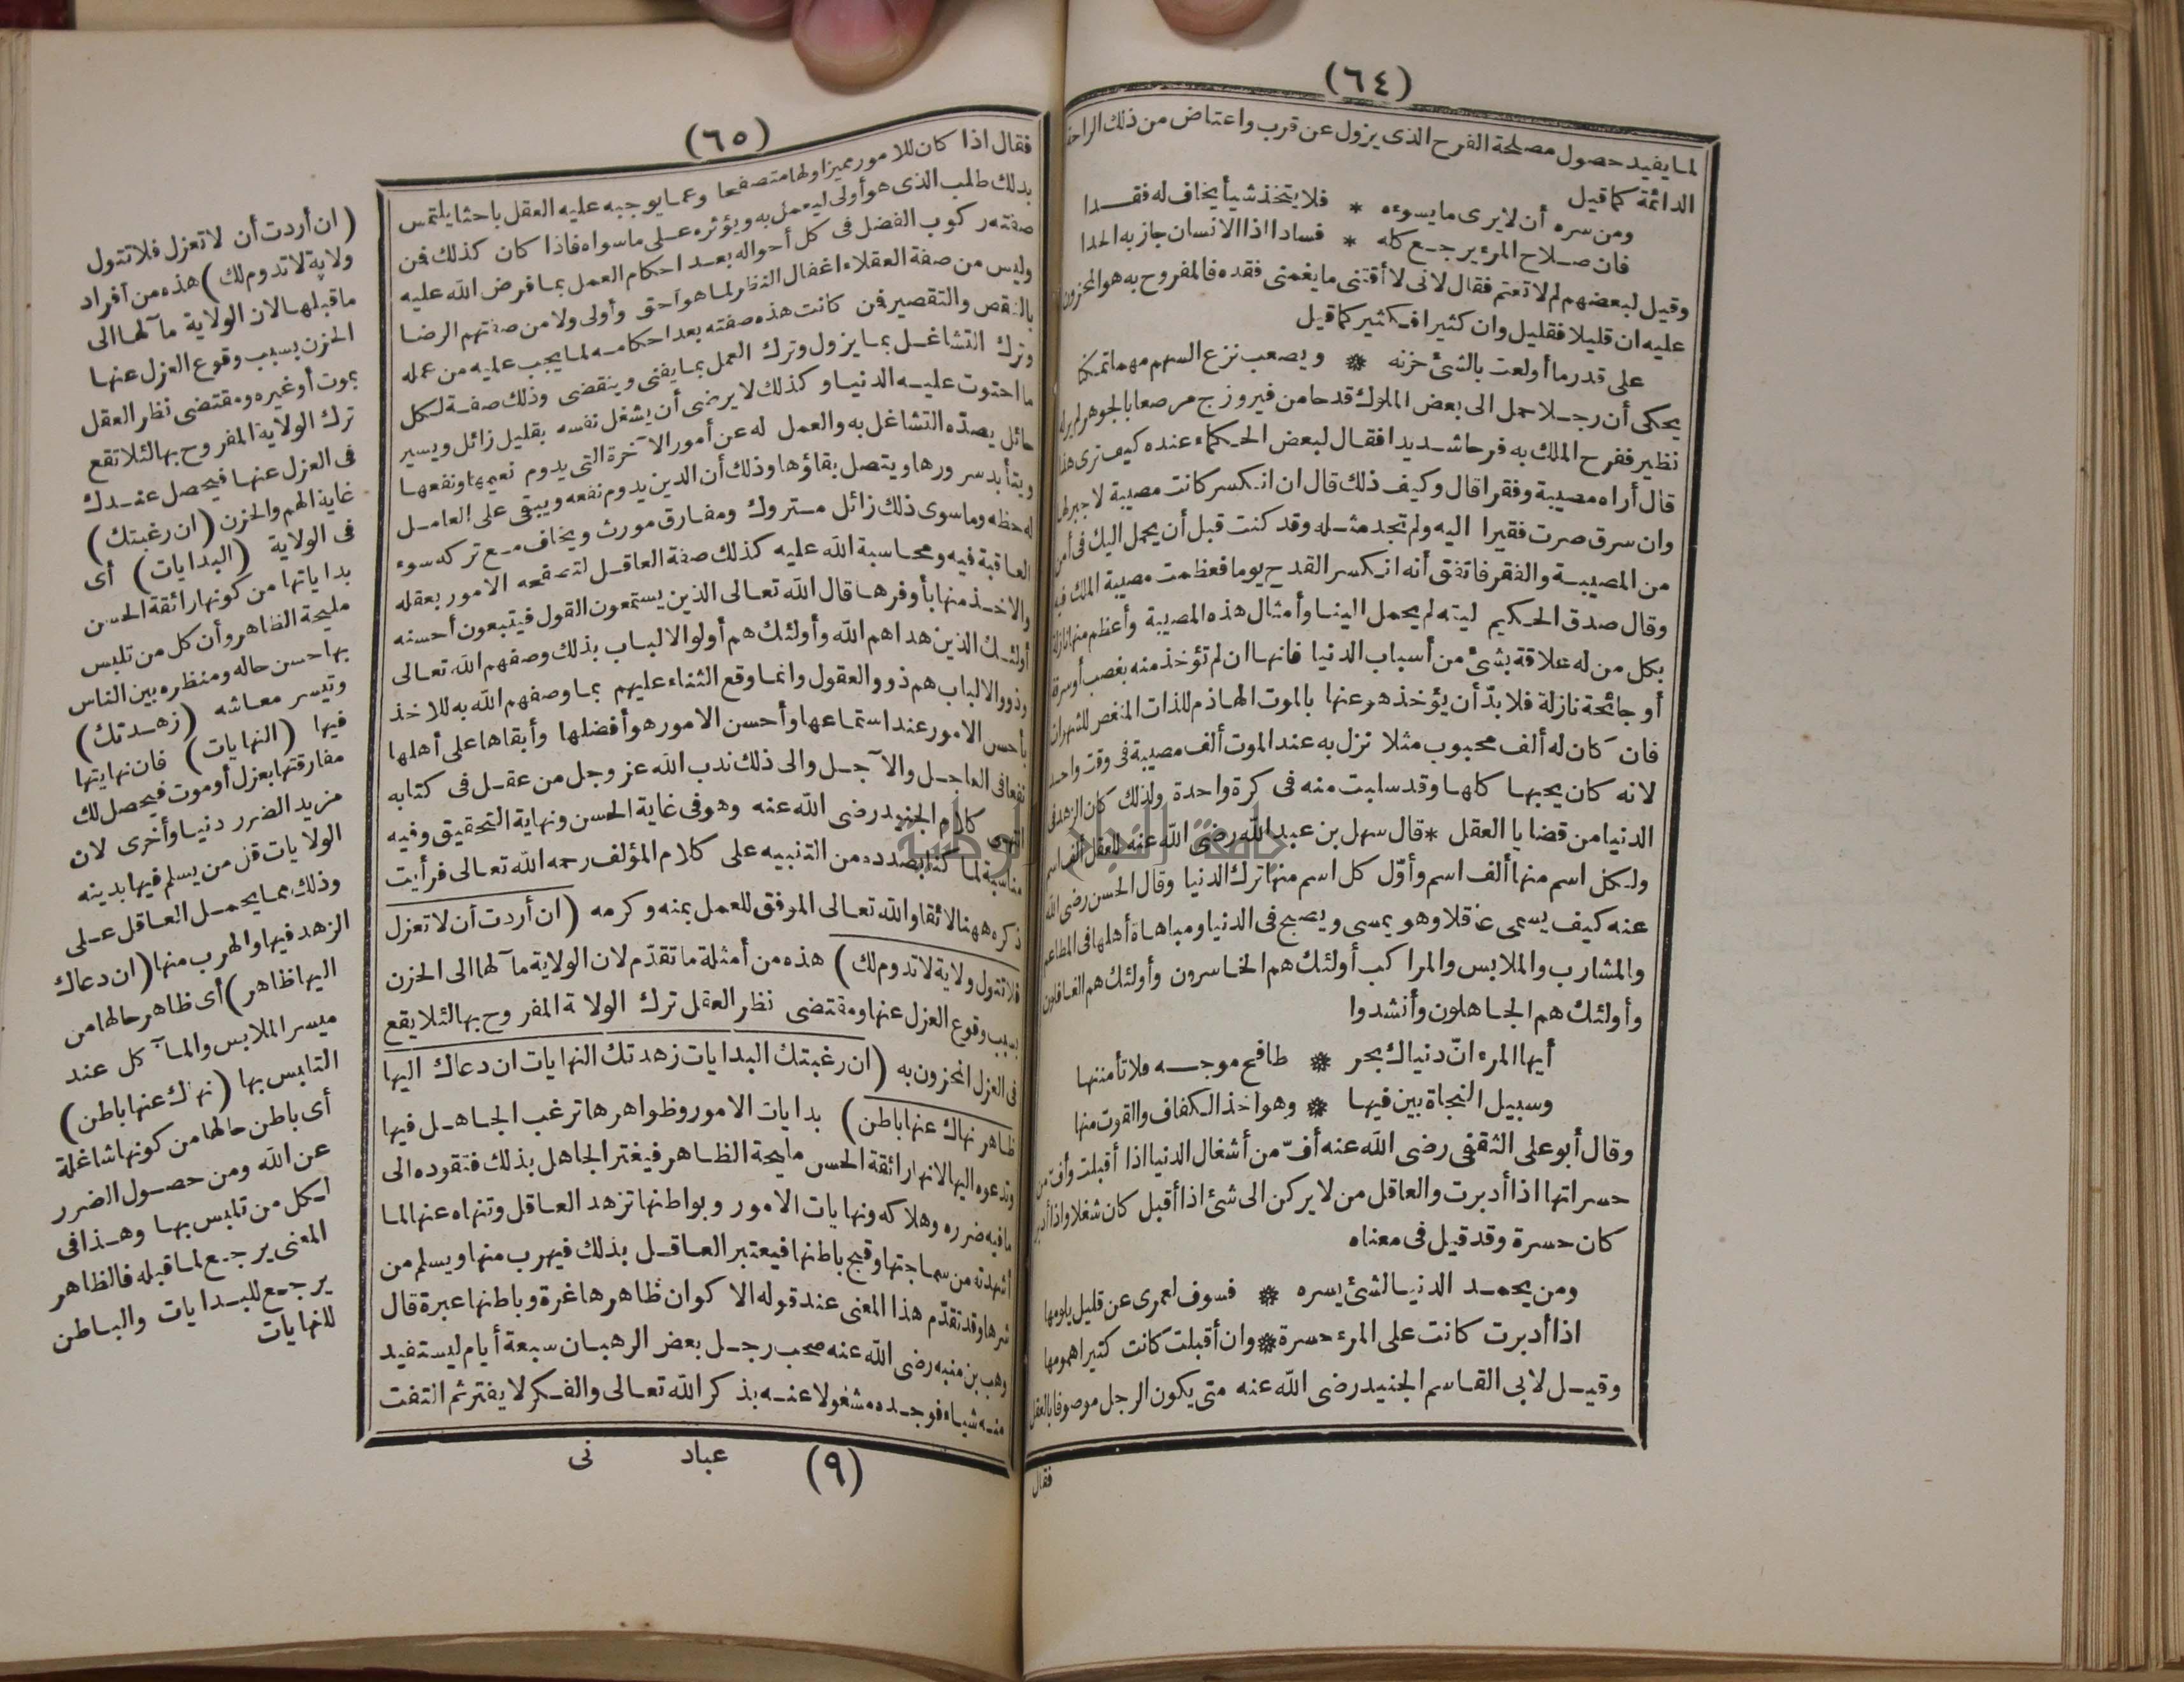 (٦٤)
لما يفيد حصول مصلحة الفرح الذى يزول عن قرب واعتاض من ذلك الراحة
الدائمة كما قيل
ومن سره أن لا يرى ما يسوءه * فلا يتخذ شيأ يخاف له فقدا
فان صلاح المرء يرجع كله * فسادا اذا الانسان جاز به الحدا
وقيل لبعضهم لم لا تغتم فقال لانى لا أقتنى ما يغمنى فقده فالمفروح به هو المحزون
عليه ان قليلا فقليل وان كثيرا فكثير كما قيل
على قدر ما أولعت بالشئ حزنه * ويصعب نزع السهم مهما تمكنا
يحكى أن رجلا حمل الى بعض الملوك قدحا من فيروزج مرصعا بالجوهر لم ير له
نظير ففرح الملك به فرحا شديدا فقال لبعض الحكماء عنده كيف ترى هذا
قال أراه مصيبة وفقرا قال وكيف ذلك قال ان انكسر كانت مصيبة لا جبر لها
وان سرق صرت فقيرا اليه ولم تجد مثله وقد كنت قبل أن يحمل اليك فى أمن
من المصيبة والفقر فاتفق أنه انكسر القدح يوما فعظمت مصيبة الملك فيه
وقال صدق الحكيم ليته لم يحمل الينا وأمثال هذه المصيبة وأعظم منها نازلة
بكل من له علاقة بشئ من أسباب الدنيا فانها ان لم تؤخذ منه بغصب أو سرقة
أو جائحة نازلة فلا بدّ أن يؤخذ هو عنها بالموت الهاذم للذات المنغص للشهوات
فان كان له ألف محبوب مثلا نزل به عند الموت ألف مصيبة فى وقت واحد
لانه كان يحبها كلها وقد سلبت منه فى كرة واحدة ولذلك كان الزهد فى
الدنيا من قضايا العقل * قال سهل بن عبد الله رضى الله عنه للعقل ألف اسم
ولكل اسم منها ألف اسم وأوّل كل اسم منها ترك الدنيا وقال الحسن رضى الله
عنه كيف يسمى عاقلا وهو يمسى ويصبح فى الدنيا ومباهاة أهلها فى المطاعم
والمشارب والملابس والمراكب أولئك هم الخاسرون وأولئك هم الغافلون
وأولئك هم الجاهلون وأنشدوا
أيها المرء انّ دنياك بحر * طافح موجه فلا تأمننها
وسبيل النجاة بين فيها * وهو أخذ الكفاف والقوت منها
وقال أبو على الثقفى رضى الله عنه أفّ من أشغال الدنيا اذا أقبلت وأف من
حسراتها اذا أدبرت والعاقل من لا يركن الى شئ اذا أقبل كان شغلا واذا أدبر
كان حسرة وقد قيل فى معناه
ومن يحمد الدنيا لشئ يسره * فسوف لعمرى عن قليل يلومها
اذا أدبرت كانت على المرء حسرة * وان أقبلت كانت كثيرا همومها
وقيل لابى القاسم الجنيد رضى الله عنه متى يكون الرجل موصوفا بالعقل
فقال
(٦٥)
فقال اذا كان للامور مميزا ولها متصفحا وعما يوجبه عليه العقل باحثا يلتمس
بذلك طلب الذى هو أولى ليعمل به ويؤثره على ما سواه فاذا كان كذلك فمن
صفته ركوب الفضل فى كل أحواله بعد احكام العمل بما فرض الله عليه
وليس من صفة العقلاء اغفال النظر لما هو أحق وأولى ولا من صفتهم الرضا
بالنقص والتقصير فمن كانت هذه صفته بعد احكامه لما يجب عليه من عمله
وترك التشاغل بما يزول وترك العمل بما يفنى وينقضى وذلك صفة لكل
ما احتوت عليه الدنيا وكذلك لا يرضى أن يشغل نفسه بقليل زائل ويسير
حائل يصدّه التشاغل به والعمل له عن أمور الآخرة التى يدوم نعيمها ونفعها
ويتأبد سرورها ويتصل بقاؤها وذلك أن الذين يدوم نفعه ويبقى على العامل
له حظه وما سوى ذلك زائل متروك ومفارق موروث ويخاف مع تركه سوء
العاقبة فيه ومحاسبة الله عليه كذلك صفة العاقل لتصفحه الامور بعقله
والاخذ منها بأوفرها قال الله تعالى الذين يستمعون القول فيتبعون أحسنه
أولئك الذين هداهم الله وأولئك هم أولو الالباب بذلك وصفهم الله تعالى
وذوو الالباب هم ذوو العقول وانما وقع الثناء عليهم بما وصفهم الله به للاخذ
بأحسن الامور عند استماعها وأحسن الامور هو أفضلها وأبقاها على أهلها
نفعا فى العاجل والآجل والى ذلك ندب الله عز وجل من عقل فى كتابه
انتهى كلام الجنيد رضى الله عنه وهو فى غاية الحسن ونهاية التحقيق وفيه
مناسبة لما كنا بصدده من التنبيه على كلام المؤلف رحمه الله تعالى فرأيت
ذكره ههنا لائقا والله تعالى الموفق للعمل بمنه وكرمه (ان أردت أن لا تعزل
فلا تتول ولاية لا تدوم لك) هذه من أمثلة ما تقدّم لان الولاية مآلها الى الحزن
بسبب وقوع العزل عنها ومقتضى نظر العقل ترك الولاية المفروح بها لئلا يقع
فى العزل المحزون به (ان رغبتك البدايات زهدتك النهايات ان دعاك اليها
ظاهر نهاك عنها باطن) بدايات الامور وظواهرها ترغب الجاهل فيها
وتدعوه اليها لانها رائقة الحسن مليحة الظاهر فيغتر الجاهل بذلك فتقوده الى
ما فيه ضرره وهلاكه ونهايات الامور وبواطنها تزهد العاقل وتنهاه عنها لما
أشهدته من سماجتها وقبح باطنها فيعتبر العاقل بذلك فيهرب منها ويسلم من
شرها وقد تقدّم هذا المعنى عند قوله الاكوان ظاهرها غرة وباطنها عبرة قال
وهب بن منبه رضى الله عنه صحب رجل بعض الرهبان سبعة أيام ليستفيد
منه شيأ فوجده مشغولا عنه بذكر الله تعالى والفكر لا يفتر ثم التفت
(٩) عباد نى
(ان أردت أن لا تعزل فلا تتول
ولاية لا تدوم لك) هذه من أفراد
ما قبلها لان الولاية مآلها الى
الحزن بسبب وقوع العزل عنها
بموت أو غيره ومقتضى نظر العقل
ترك الولاية المفروح بها لئلا تقع
فى العزل عنها فيحصل عندك
غاية الهم والحزن (ان رغبتك)
فى الولاية (البدايات) أى
بداياتها من كونها رائقة الحسن
مليحة الظاهر وأن كل من تلبس
بها حسن حاله ومنظره بين الناس
وتيسر معاشه (زهدتك)
فيها (النهايات) فان نهايتها
مفارقتها بعزل أو موت فيحصل لك
مزيد الضرر دنيا وأخرى لان
الولايات قل من يسلم فيها بدينه
وذلك مما يحمل العاقل على
الزهد فيها والهرب منها (ان دعاك
اليها ظاهر) أى ظاهر حالها من
ميسر الملابس والمآكل عند
التلبس بها (نهاك عنها باطن)
أى باطن حالها من كونها شاغلة
عن الله ومن حصول الضرر
لكل من تلبس بها وهذا فى
المعنى يرجع لما قبله فالظاهر
يرجع للبدايات والباطن
للنهايات
جامعة النجاح الوطنية